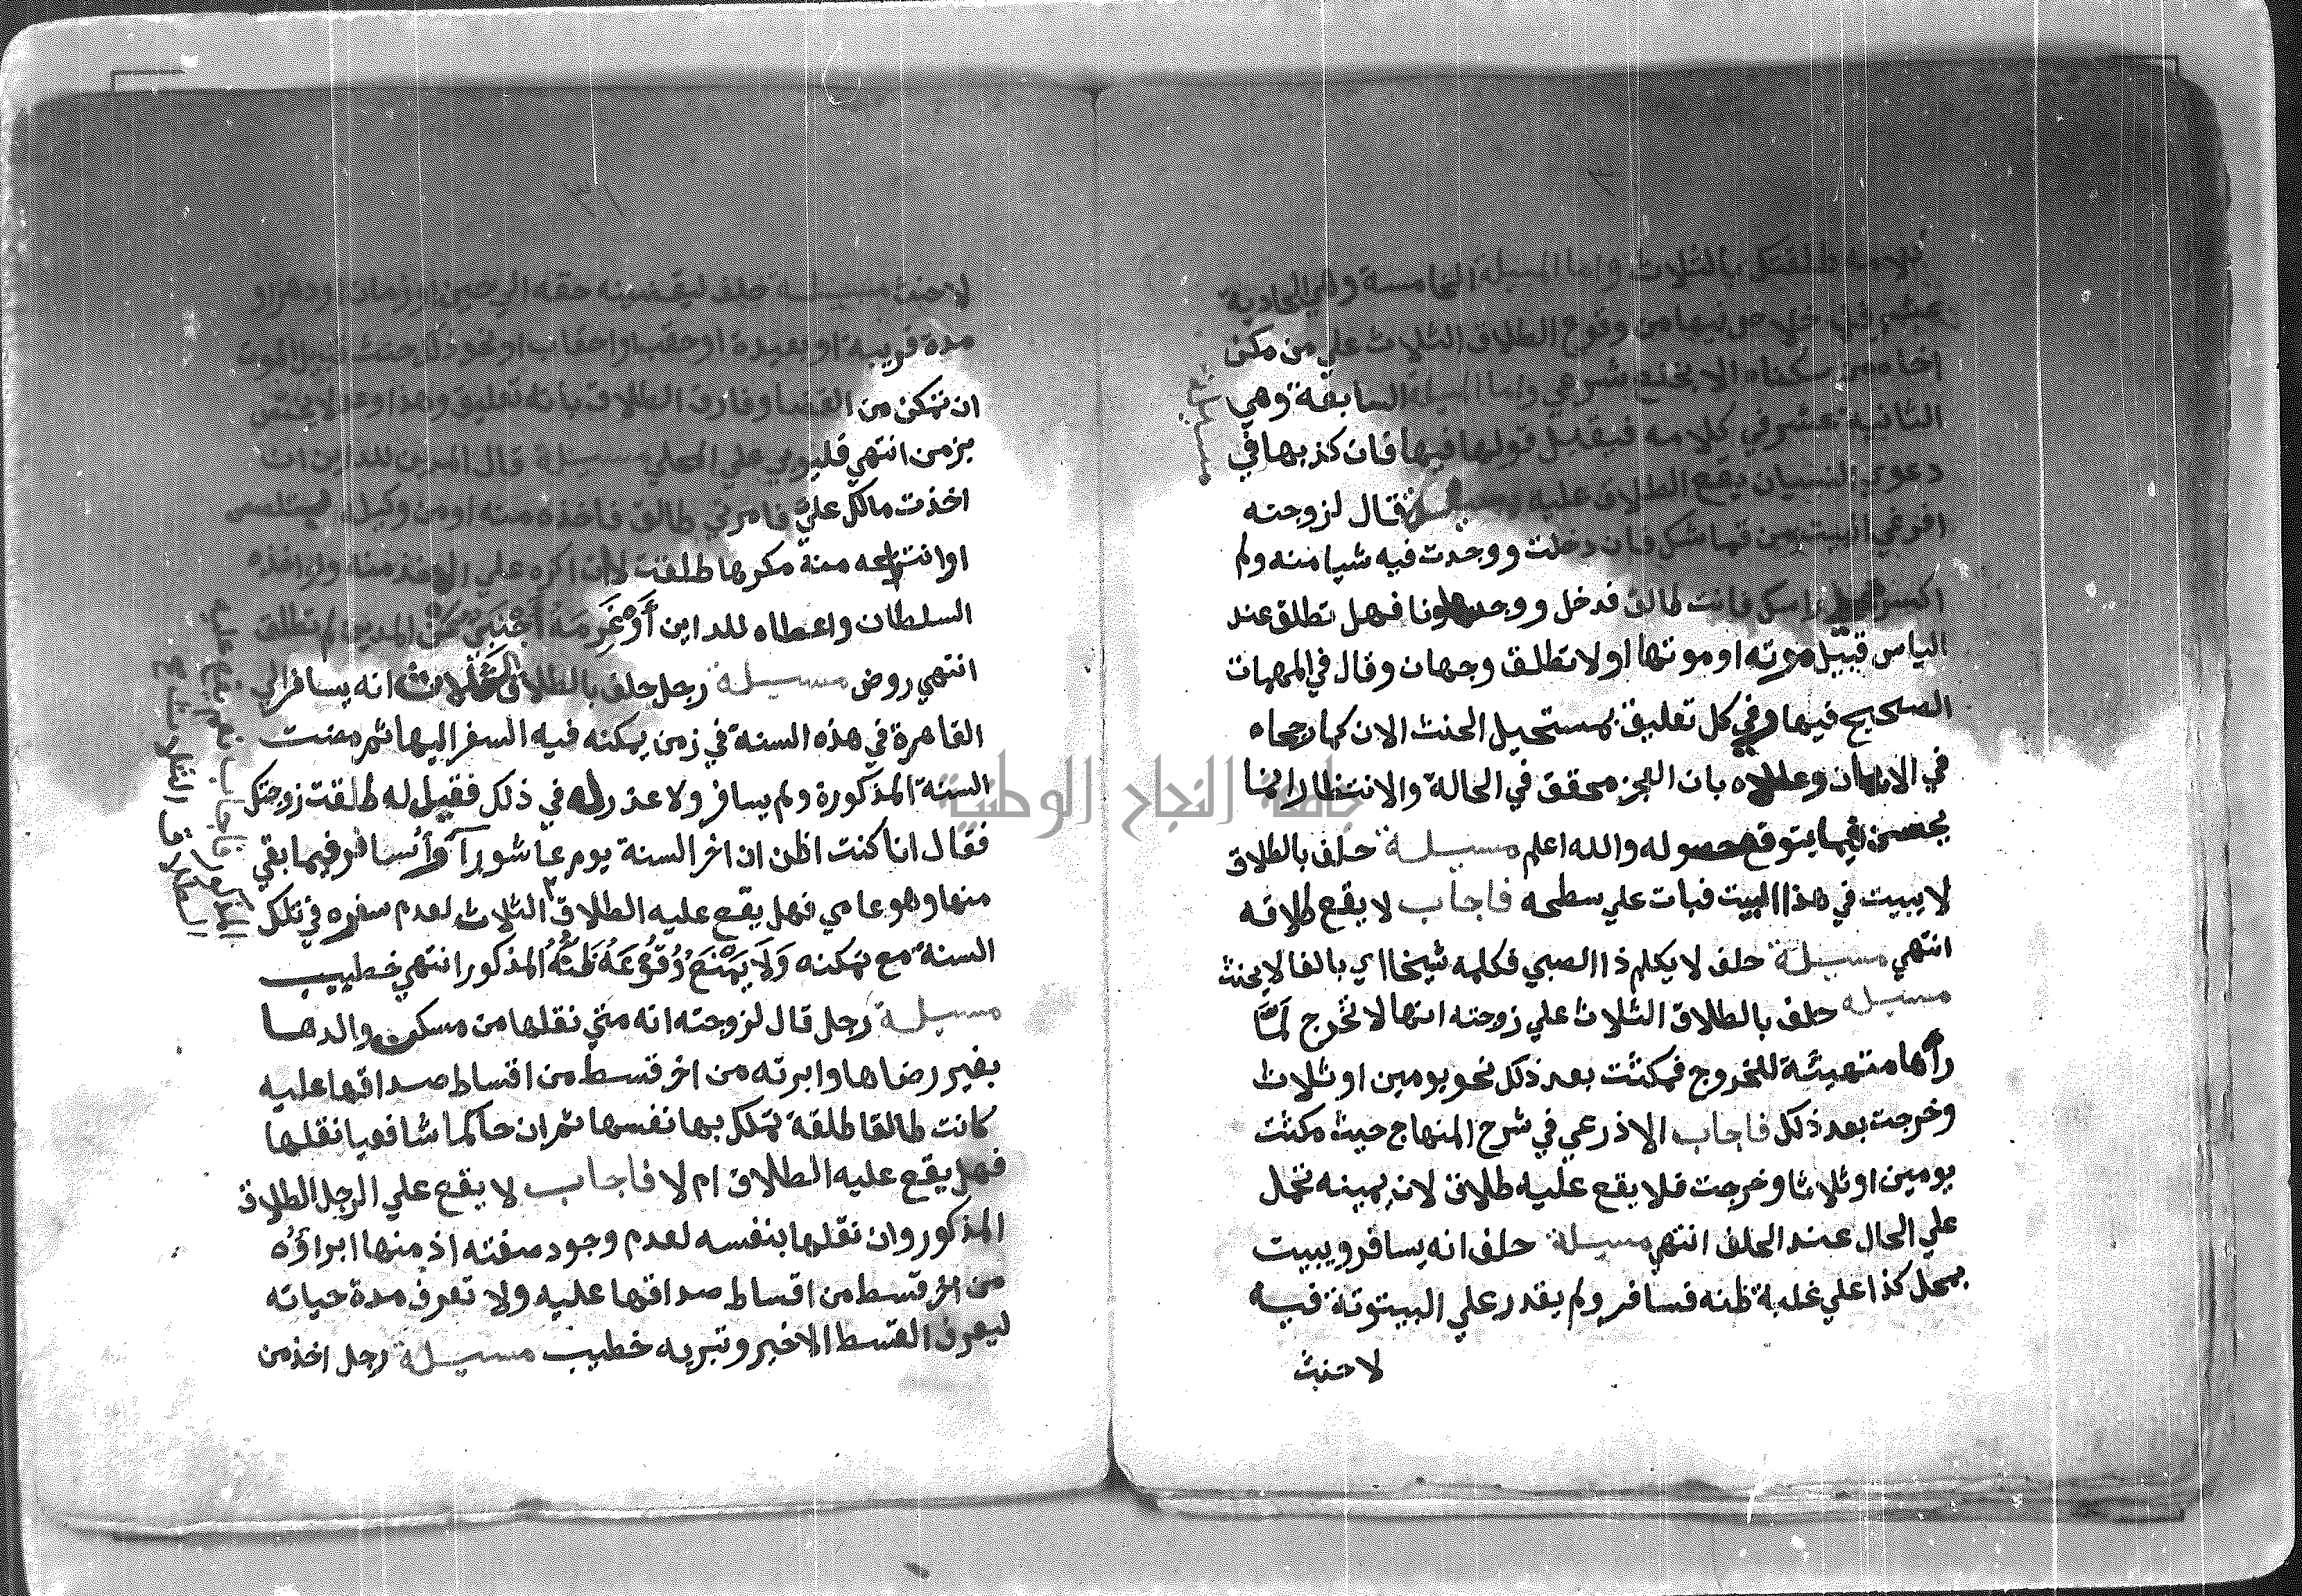 طلقتك بالثلاث واما المسيلة الخامسة وهي الحادية
عشر في خلاص فيها من وقوع الطلاق الثلاث علي من مكن
اخاه من سكناه الا بخلع شرعي واما المسيلة السابعة وهي
الثانية عشر في كلامه فيقبل قولها فيها فان كذبها في
دعوي النسيان يقع الطلاق عليه مسيلة قال لزوجته
ان دخلت ووجدت فيه شيا منه ولم
اكسره علي راسك فانت طالق فدخل ووجد هاونا فهل تطلق عند
الياس قبيل موته او موتها او لا تطلق وجهان وقال في المهمات
الصحيح فيها وفي كل تعليق بمستحيل الحنث الان كما رجحاه
في الايمان وعللاه بان العجز محقق في الحالة والانتظار انما
يحسن فيما يتوقع حصوله والله اعلم مسيلة حلف بالطلاق
لا يبيت في هذا البيت فبات علي سطحه فاجاب لا يقع طلاقه
انتهي مسيلة حلف لا يكلم ذا الصبي فكلمه شيخا اي بالغا لا يحنث
مسيله حلف بالطلاق الثلاث علي زوجته انها لا تخرج لمَّا
رآها متهيئة للخروج فمكثت بعد ذلك نحو يومين او ثلاث
وخرجت بعد ذلك فاجاب الاذرعي في شرح المنهاج حيث مكثت
يومين او ثلاثا وخرجت فلا يقع عليه طلاق لان يمينه تحمل
علي الحال عند الحلف انتهي مسيلة حلف انه يسافر ويبيت
بمحل كذا علي غلبة ظنه فسافر ولم يقدر علي البيتوتة فيه
لا حنث
لا حنث مسيلة حلف ليقضينه حقه الي حين او زمان او دهر او
مدة قريبة او بعيدة او حقب او احقاب او نحو ذلك حنث قبيل الموت
ان تمكن من القضا وفارق الطلاق بانه تعليق وهذا وعد لا يختص
بزمن انتهي قليوبي علي المحلي مسيلة قال المدين للداين ان
اخذت مالك علي فامرتي طالق فاخذه منه او من وكيله
او انتزعه منه مكرها طلقت لا ان اكره علي الاخذ منه ولو اخذه
السلطان واعطاه للداين أَوْ غَرِمَهُ أَجْنَبِيٌّ عَنْ المدين لم تطلق
انتهي روض مسيلة رجل حلف بالطلاق الثلاث انه يسافر الي
القاهرة في هذه السنة في زمن يمكنه فيه السفر اليها ثم مضت
السنة المذكورة ولم يسافر ولا عذر له في ذلك فقيل له طلقت زوجتك
فقال انا كنت اظن ان اخر السنة يوم عاشورآ وأسافر فيما بقي
منها وهو عامي فهل يقع عليه الطلاق الثلاث لعدم سفره في تلك
السنة مع تمكنه وَلَا يَمْنَعُ وُقُوعَهُ ظَنُّهُ المذكور انتهي خطيب
مسيلة رجل قال لزوجته انه متي نقلها من مسكن والدها
بغير رضاها وابرته من اخر قسط من اقساط صداقها عليه
كانت طالقا طلقة تملك بها نفسها ثم ان حاكما شافعيا نقلها
فهل يقع عليه الطلاق ام لا فاجاب لا يقع علي الرجل الطلاق
المذكور وان نقلها بنفسه لعدم وجود صفته اذ منها ابراؤه
من اخر قسط من اقساط صداقها عليه ولا تعرف مدة حياته
ليعرف القسط الاخير وتبريه خطيب مسيلة رجل اخذ من
جامعة النجاح الوطنية